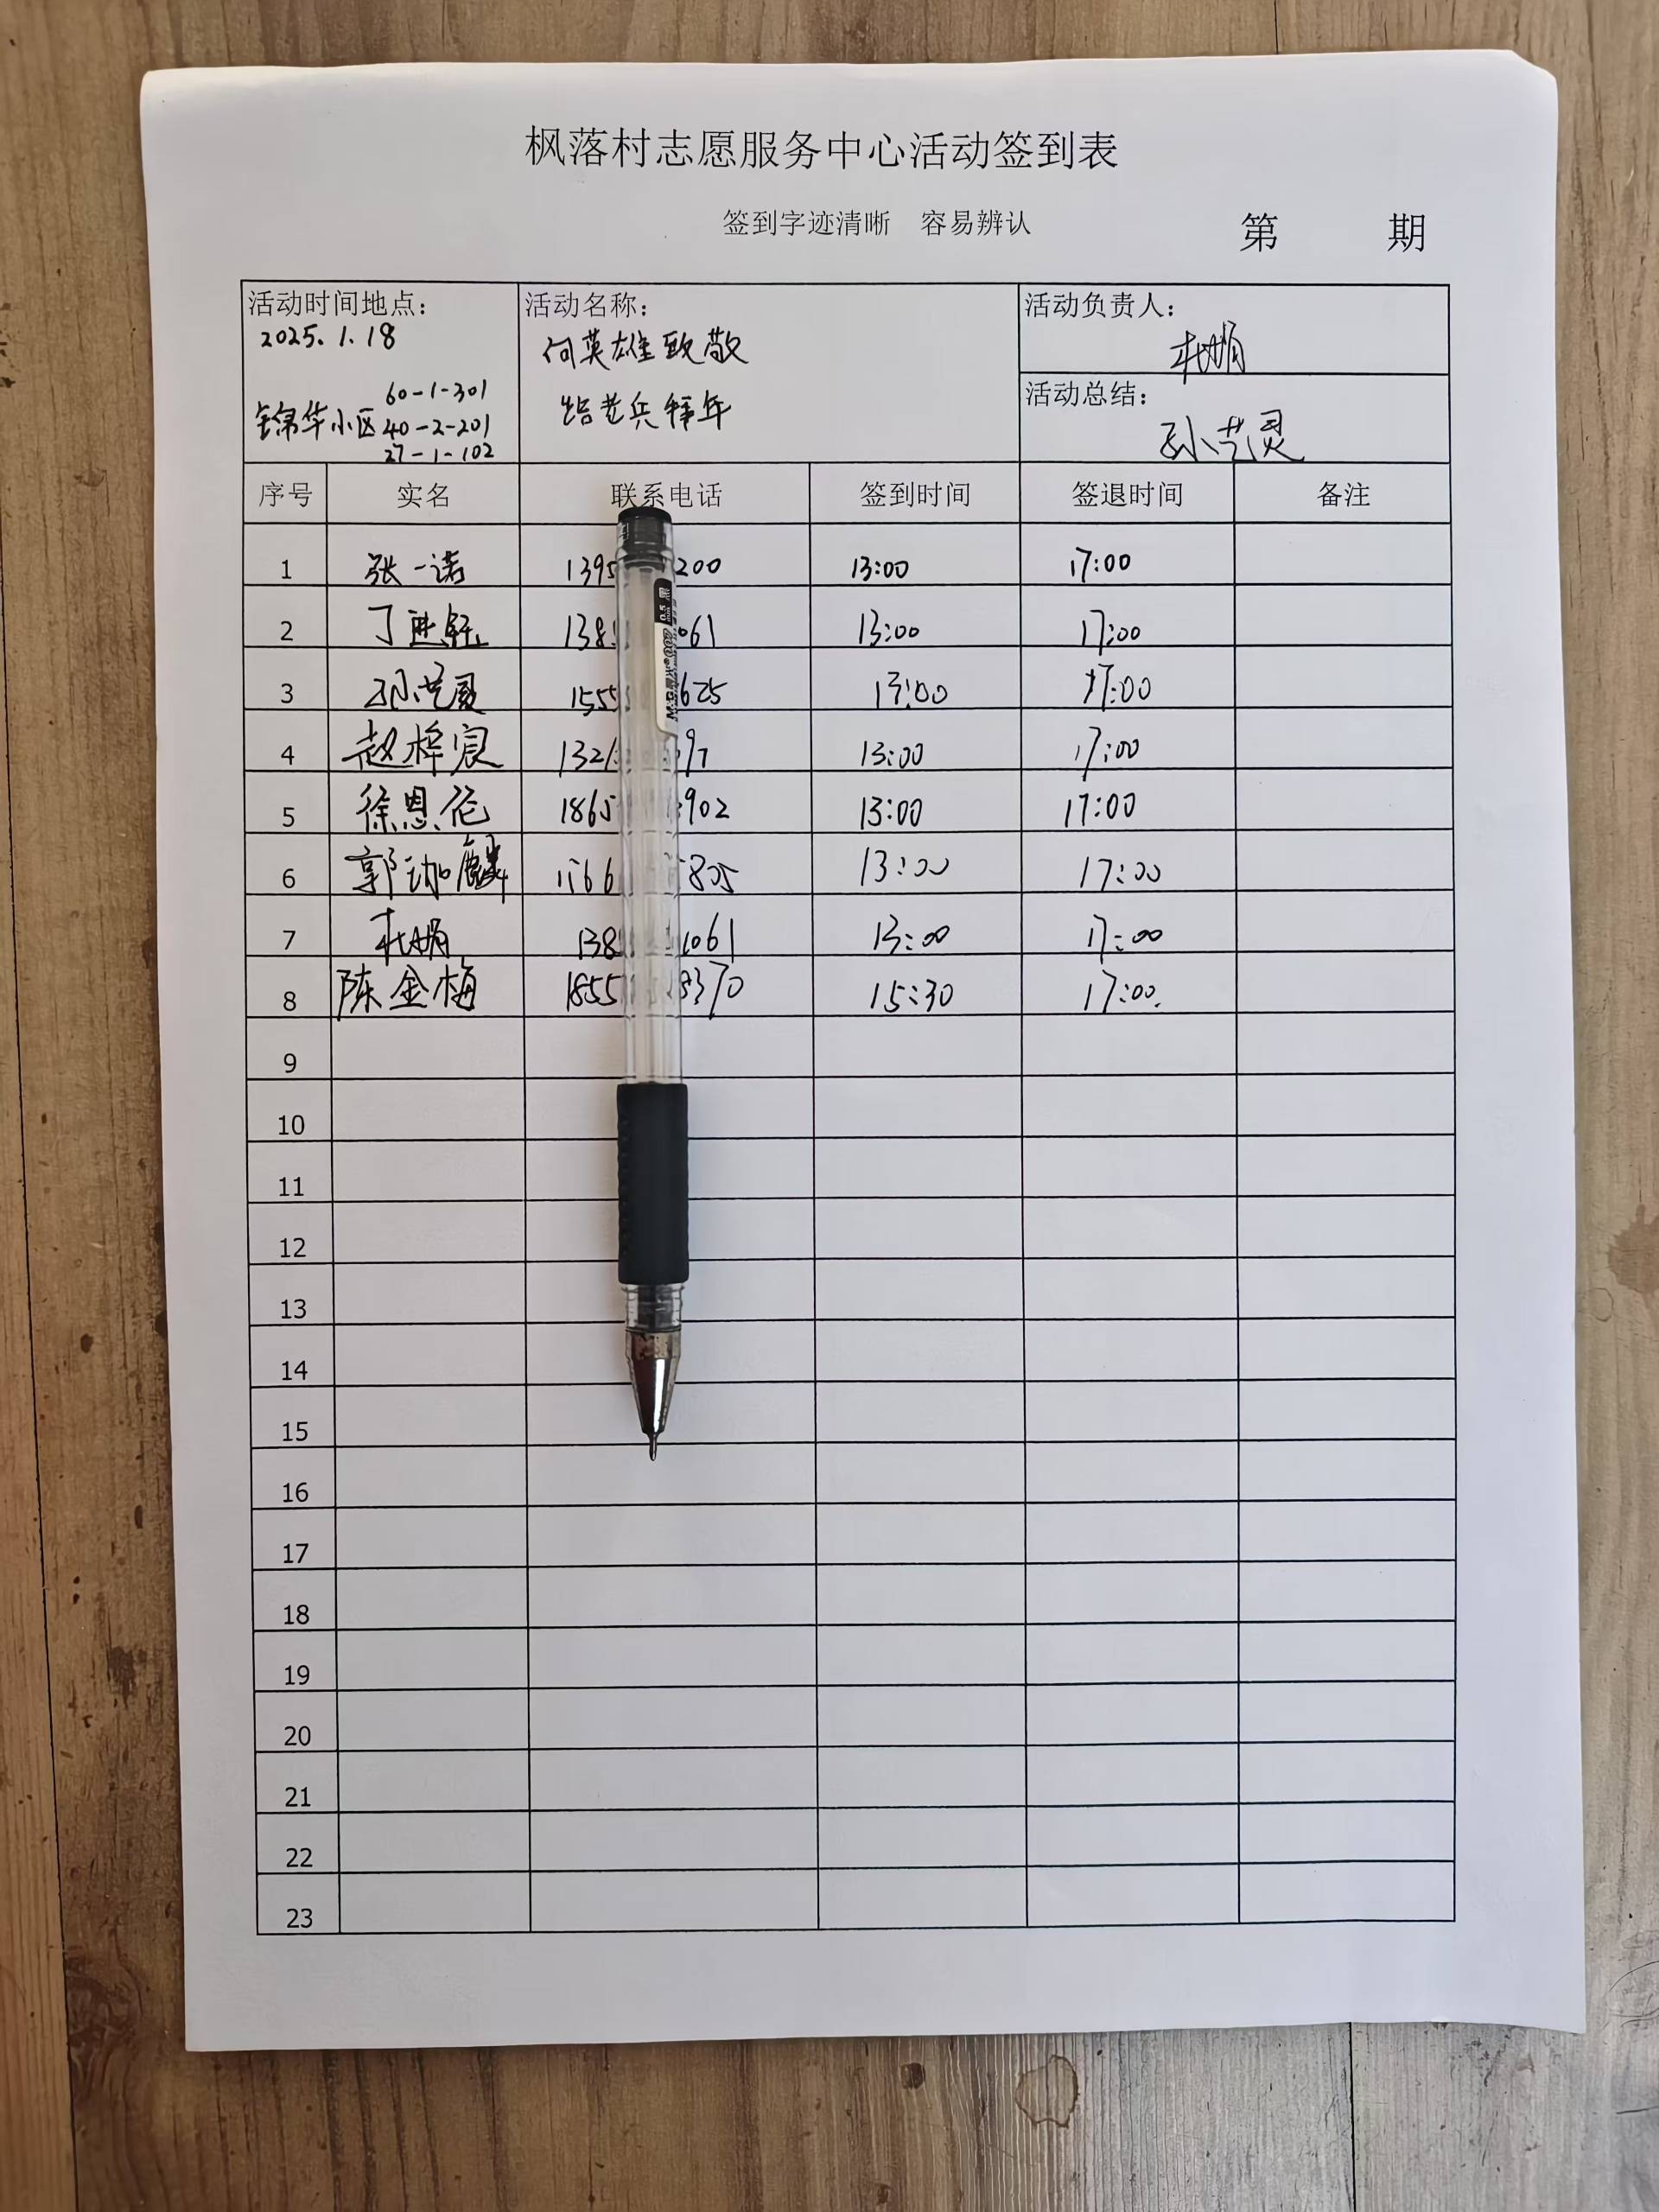 枫落村志愿服务中心活动签到表
签到字迹清晰 容易辨认 第 期
活动时间地点: 活动名称: 活动负责人:
2025.1.18 向英雄致敬 杜娟
锦华小区 60-1-301 给老兵拜年 活动总结:
40-2-201 孙艺灵
27-1-102
序号 实名 联系电话 签到时间 签退时间 备注
1 张一诺 1395 200 13:00 17:00
2 丁 138 061 13:00 17:00
3 孙艺灵 1555 625 13:00 17:00
4 赵梓宸 132 97 13:00 17:00
5 徐恩伦 1865 902 13:00 17:00
6 郭珈麟 1566 805 13:00 17:00
7 杜娟 138 1061 13:00 17:00
8 陈金梅 1855 8370 15:30 17:00
9
10
11
12
13
14
15
16
17
18
19
20
21
22
23